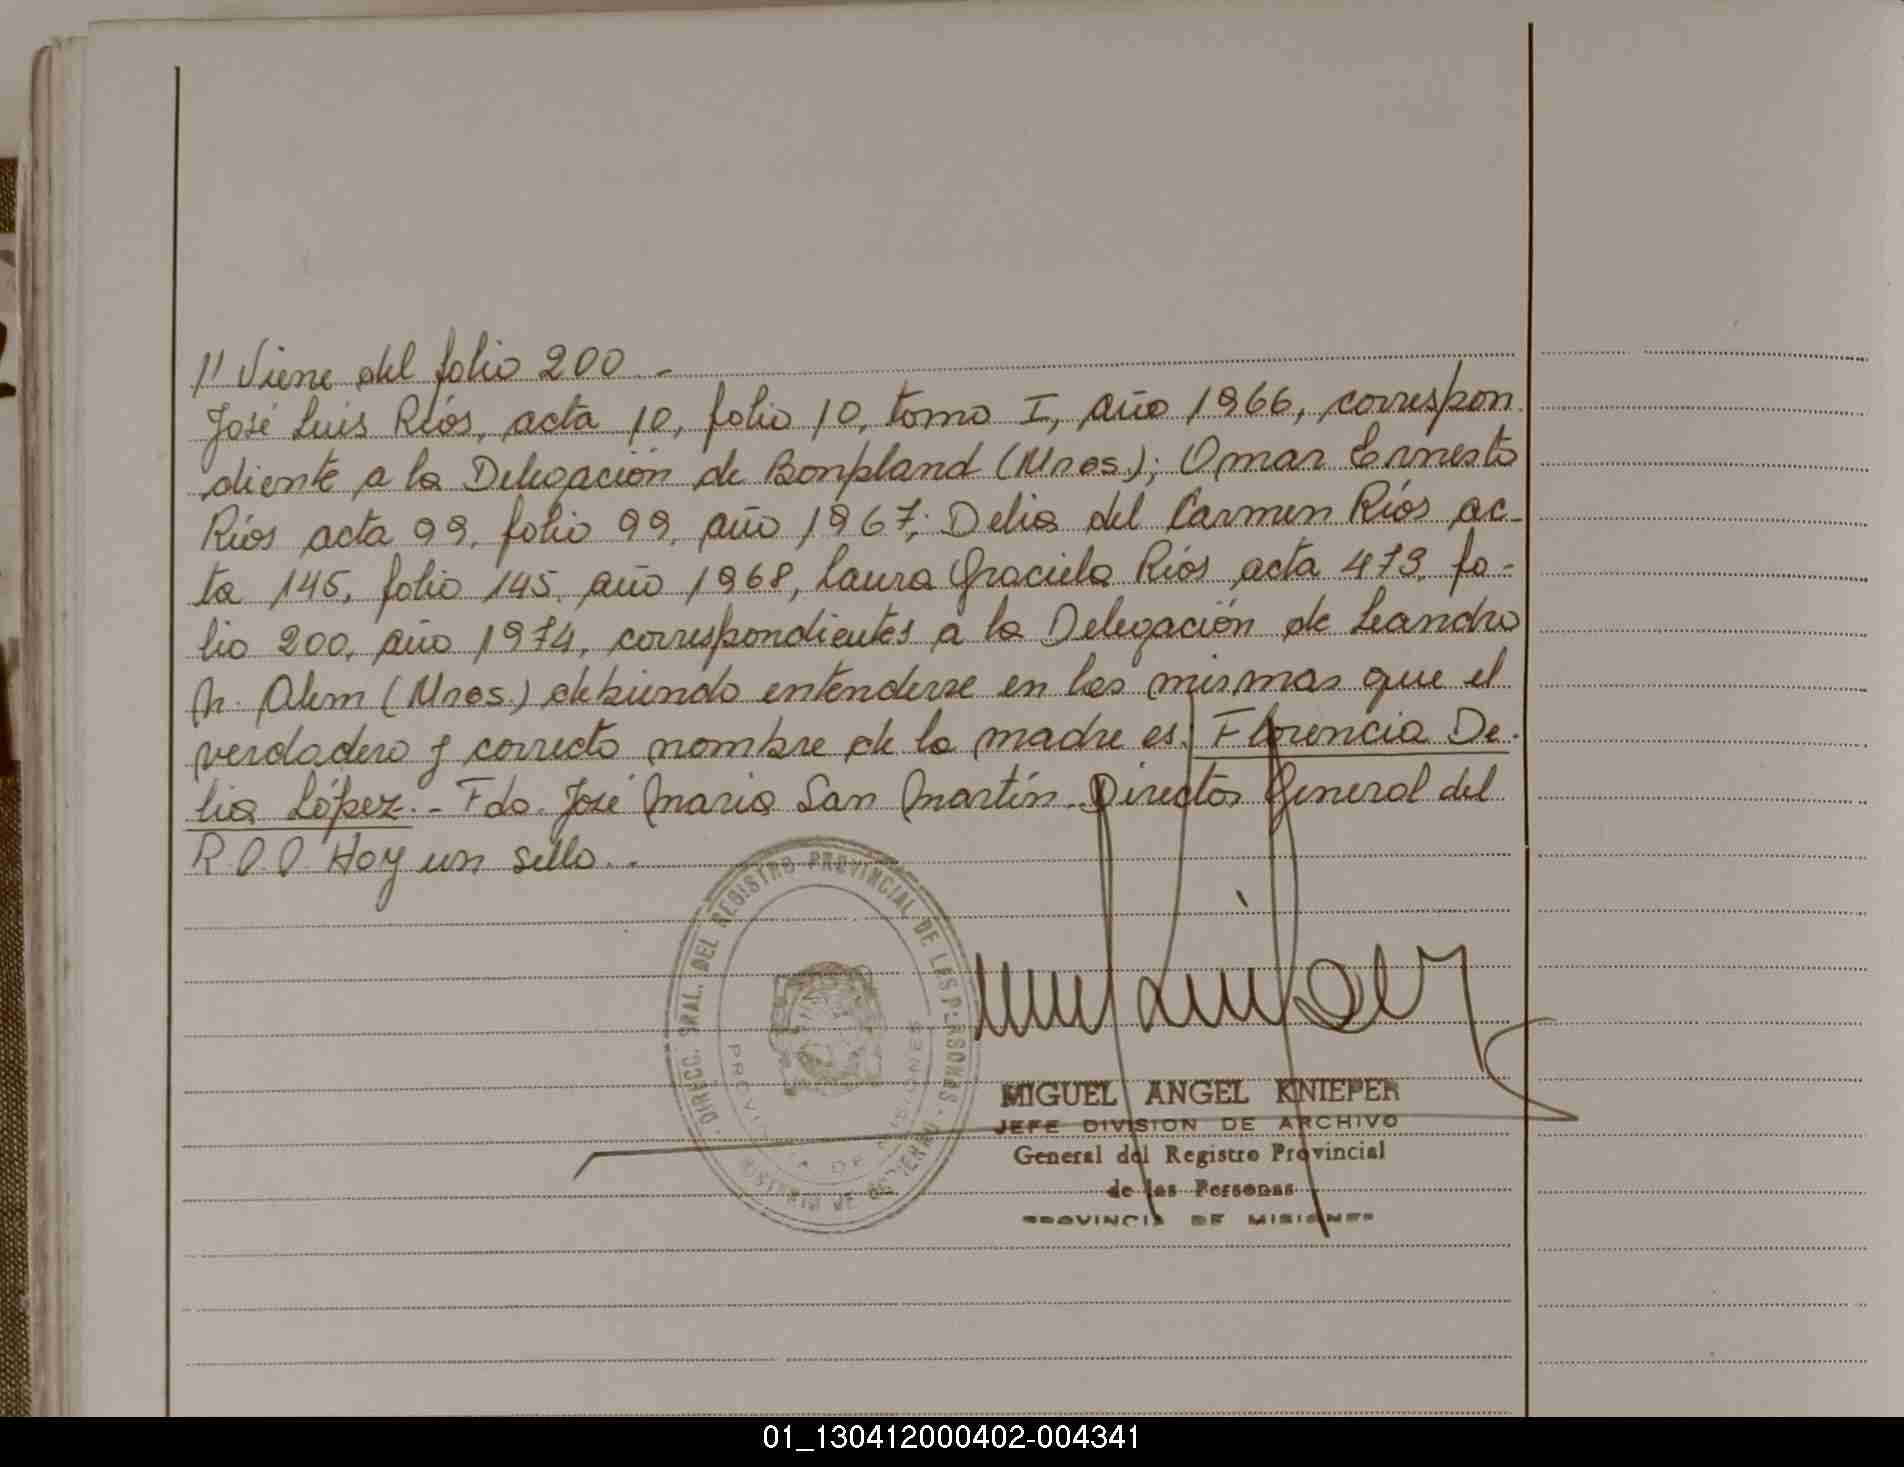 // Viene del folio 200.-
José Luis Ríos, acta 10, folio 10, tomo I, año 1966, correspon-
diente a la Delegación de Bonpland (Mnes.); Omar Ernesto
Ríos acta 99, folio 99, año 1967; Delia del Carmen Ríos ac-
ta 145, folio 145, año 1968, Laura Graciela Ríos acta 473, fo-
lio 200, año 1974, correspondientes a la Delegación de Leandro
N. Alem (Mnes.) debiendo entenderse en las mismas que el
verdadero y correcto nombre de la madre es: Florencia De-
lia López.- Fdo. José Maria San Martín. Director General del
R.P.P. Hay un sello.-
DIRECC. GRAL. DEL REGISTRO PROVINCIAL DE LAS PERSONAS
PROVINCIA DE MISIONES
MINISTERIO DE GOBIERNO
MIGUEL ANGEL KNIEPER
JEFE DIVISION DE ARCHIVO
General del Registro Provincial
de las Personas
PROVINCIA DE MISIONES
01_130412000402-004341